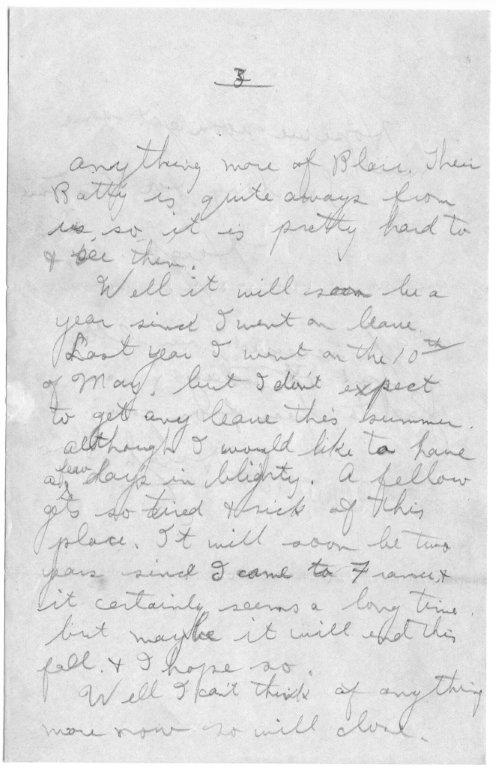 3
anything more of Blair. Their
Batty is quite aways from
us, so it is pretty hard to
& see them.
Well it will soon be a
year since I went on leave.
Last year I went on the 10th
of May, but I don't expect
to get any leave this summer.
although I would like to have
a few days in blighty. A fellow
gets so tired & sick of this
place. It will soon be two
years since I came to France &
it certainly seems a long time.
but maybe it will end this
fall. & I hope so.
Well I can't think of anything
more now so will close.